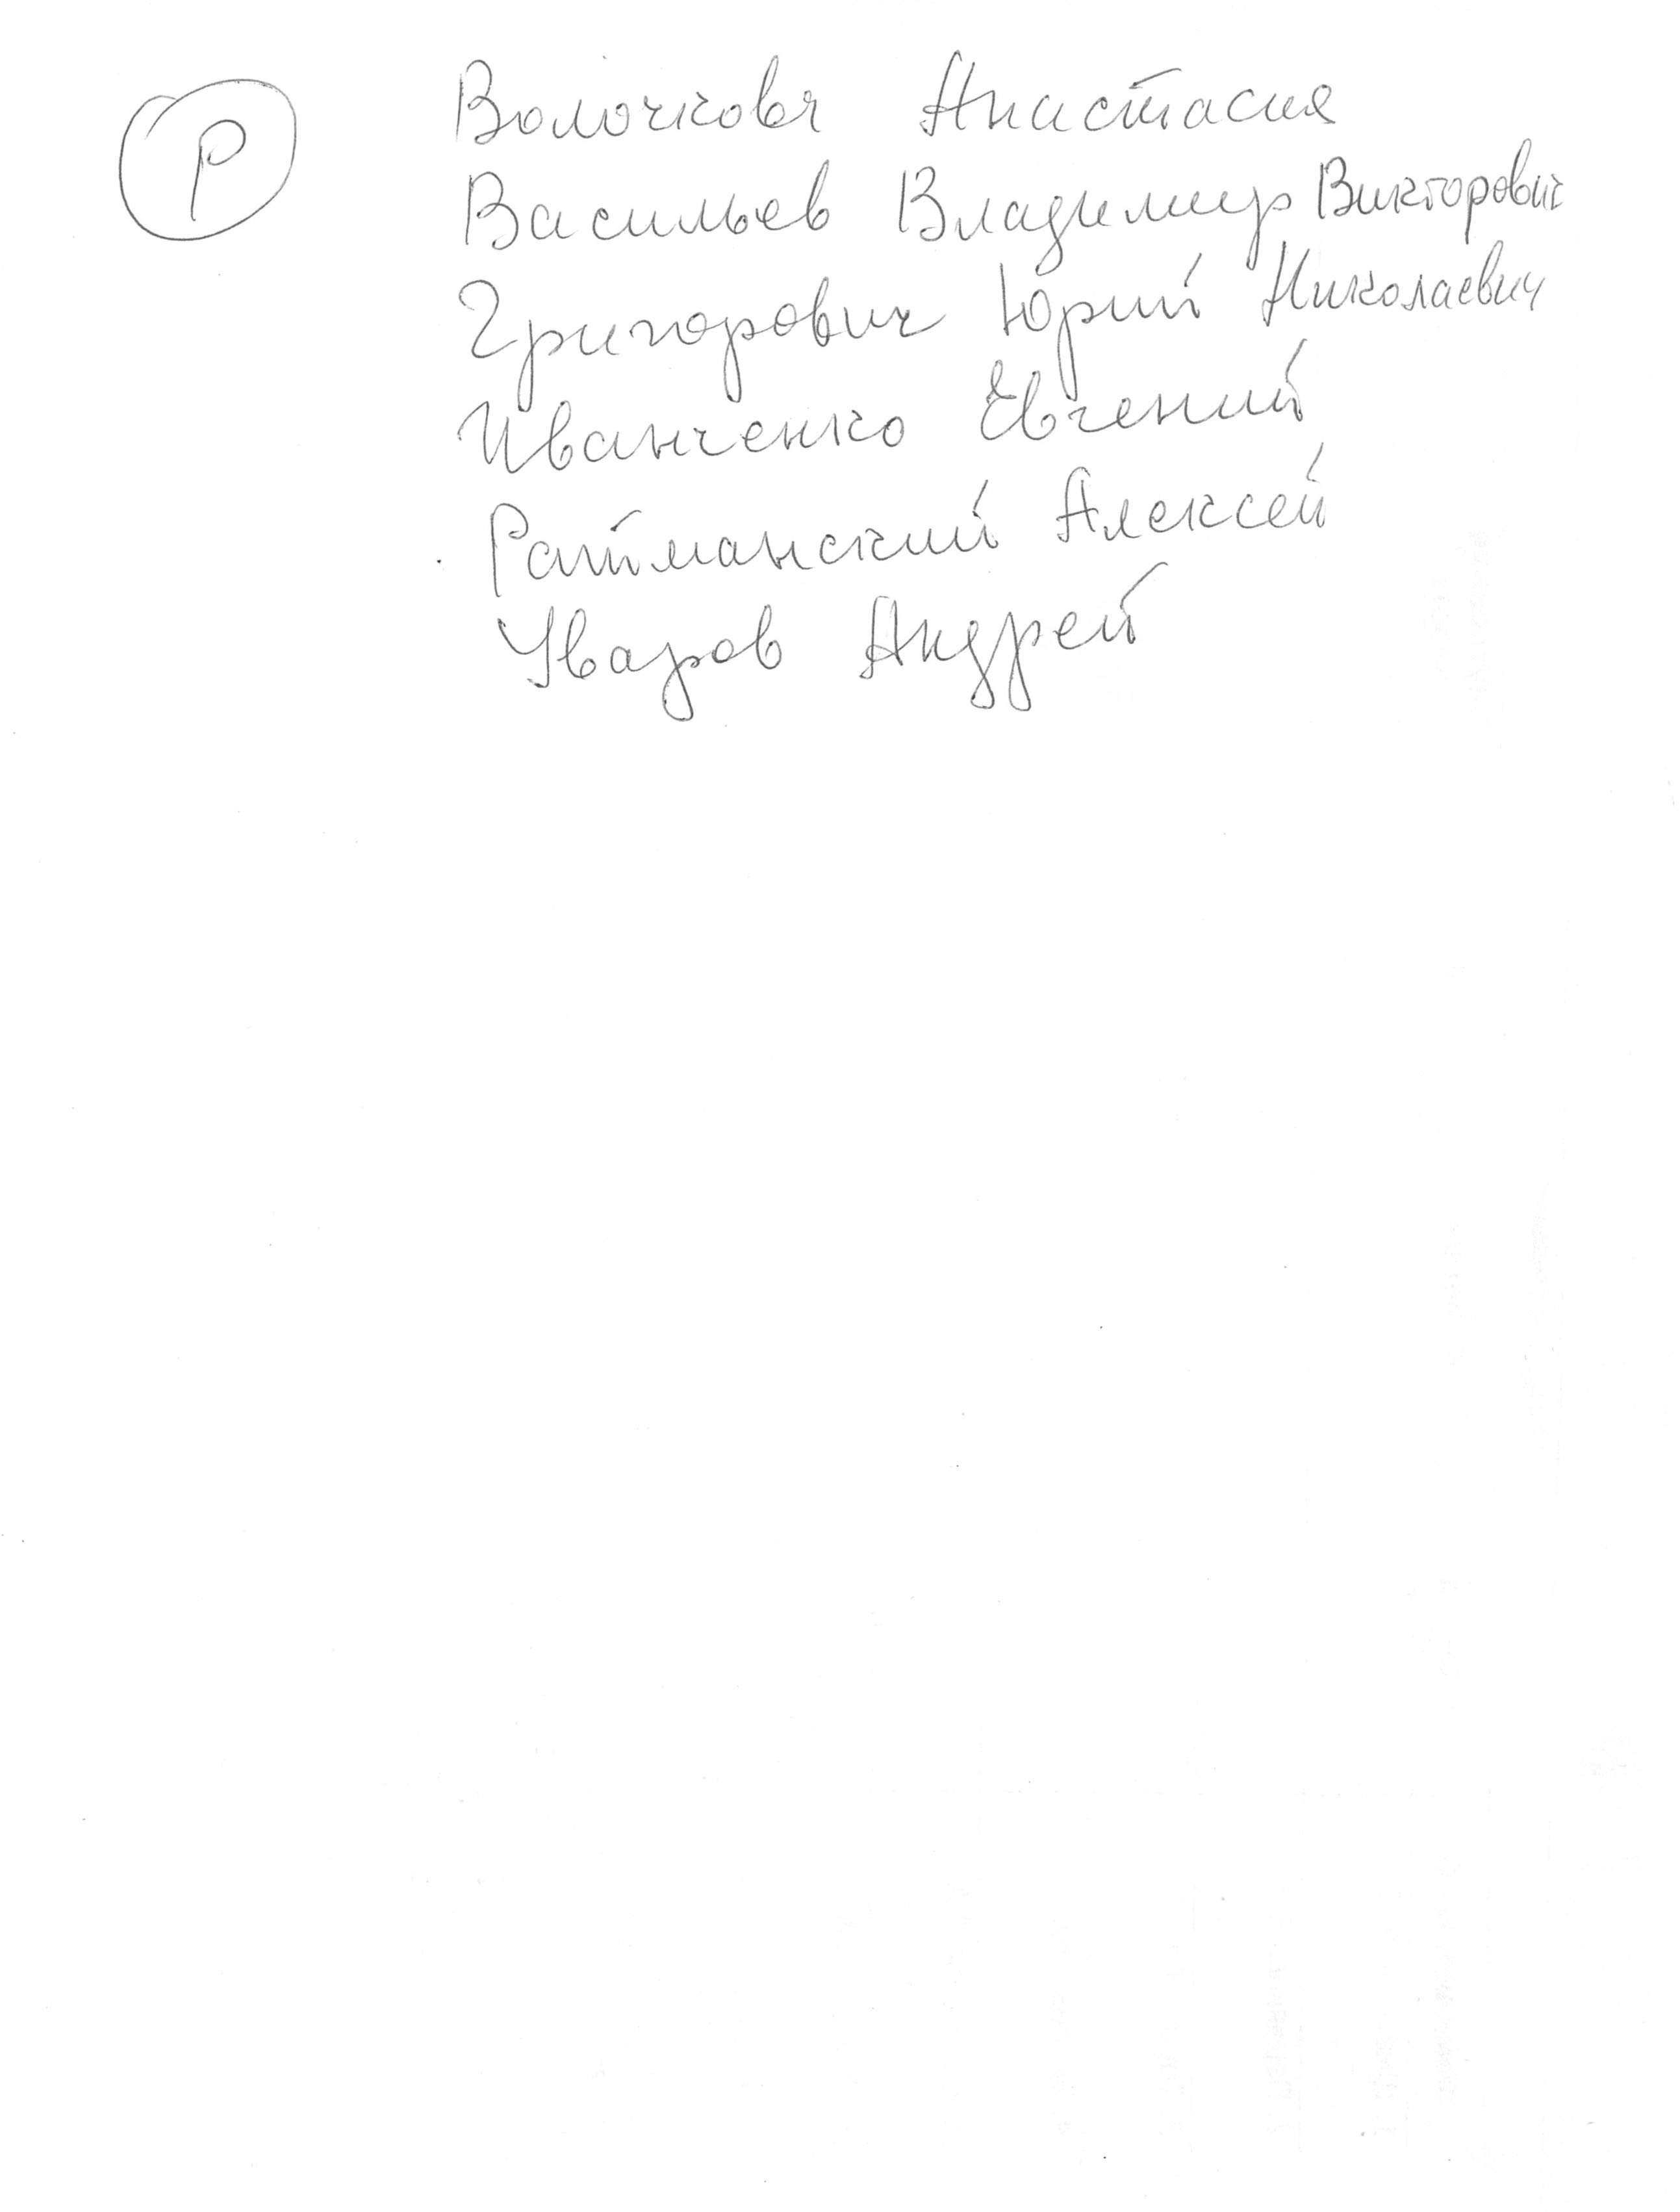 Р
Волочкова Анастасия
Васильев Владимир Викторович
Григорович Юрий Николаевич
Иванченко Евгений
Ратманский Алексей
Уваров Андрей